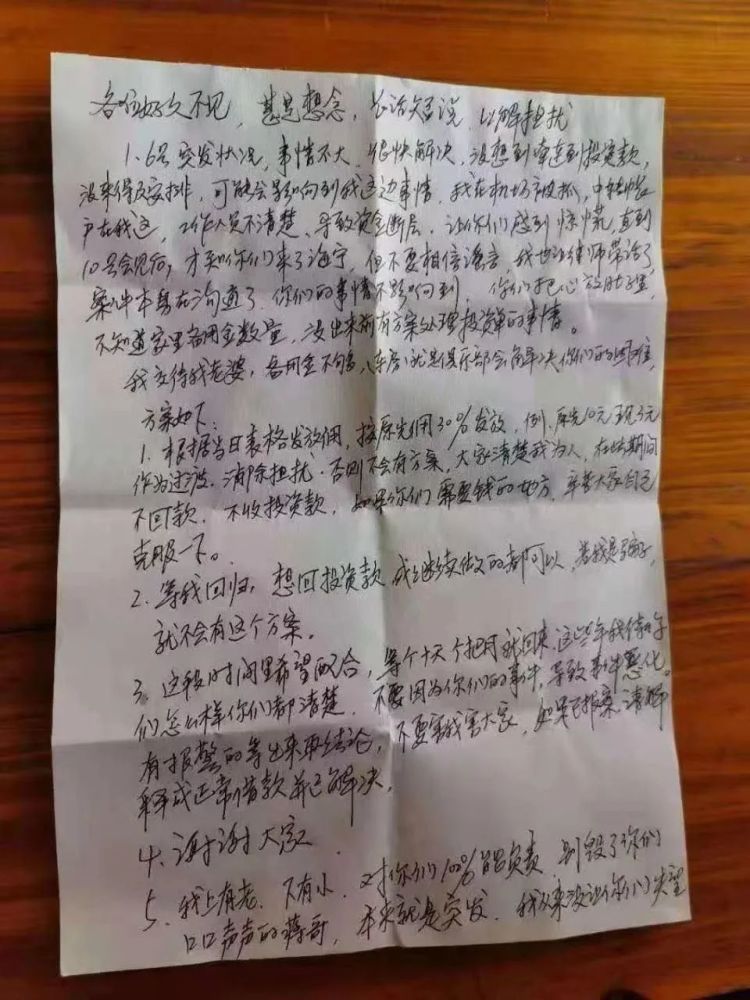 各位好久不见，甚是想念，长话短说，以解担扰
1、6号突发状况，事情不大，很快解决，没想到牵连到投资款，
没来得及安排，可能会影响到我这边事情，我在机场被抓，中转帐
户在我这，工作人员不清楚，导致资金断层，让你们感到惊慌，直到
10号会见后，才知你们来了海宁，但不要相信谣言，我也让律师带话了
案件本身在沟通了，你们的事情不影响到，你们把心放肚子里，
不知道家里备用金数量，没出来前有方案处理投资单的事情。
我交待我老婆，备用金不够，（车房）就是俱乐部会解决你们的困难，
方案如下：
1、根据当日表格发放佣，按原先佣30%发放，例、原先10元现3元
作为过渡，消除担扰，否则不会有方案，大家清楚我为人，在此期间
不回款，不收投资款，如果你们需要钱的地方，辛苦大家自己
克服一下。
2、等我回归，想回投资款或继续做的都可以，若我是骗子，
就不会有这个方案。
3、这段时间里希望配合，等个十天个把月就回来，这些年我待你
们怎么样你们都清楚，不要因为你们的事件，导致事件恶化。
有报警的等出来再结论，不要害我害大家，如果已报案请解
释成正常借款并已解决。
4、谢谢大家
5、我上有老、下有小，对你们100%能负责，别毁了你们
口口声声的蒋哥，本来就是突发，我从来没让你们失望